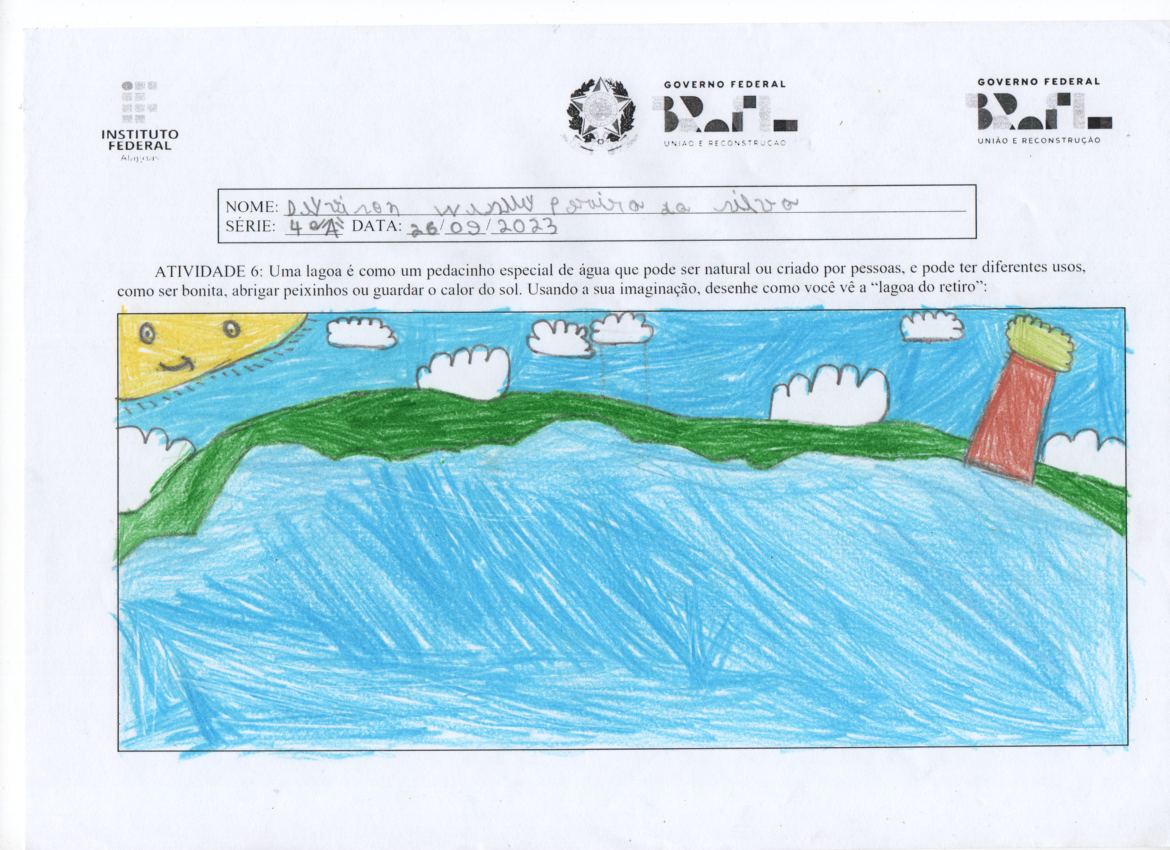 INSTITUTO
FEDERAL
Alagoas
GOVERNO FEDERAL
BRASIL
UNIÃO E RECONSTRUÇÃO
GOVERNO FEDERAL
BRASIL
UNIÃO E RECONSTRUÇÃO
NOME: Pereira da silva
SÉRIE: 4º "A" DATA: 26/09/2023
ATIVIDADE 6: Uma lagoa é como um pedacinho especial de água que pode ser natural ou criado por pessoas, e pode ter diferentes usos,
como ser bonita, abrigar peixinhos ou guardar o calor do sol. Usando a sua imaginação, desenhe como você vê a “lagoa do retiro”: